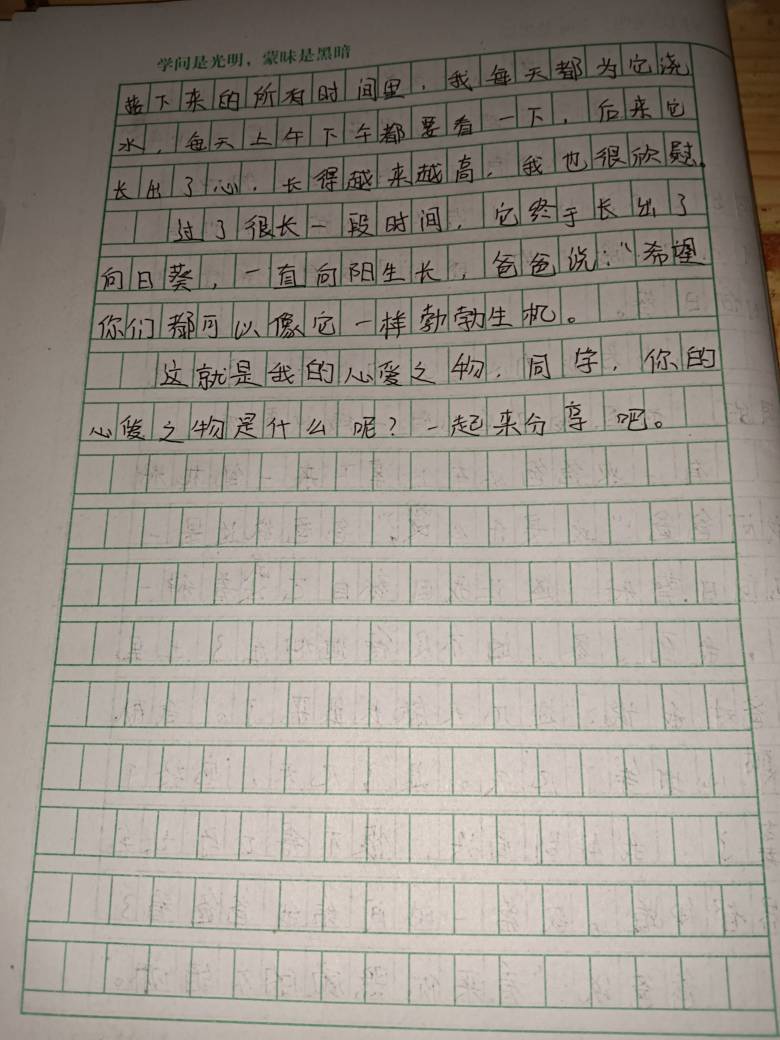 学问是光明，蒙昧是黑暗
接下来的所有时间里，我每天都为它浇
水，每天上午下午都要看一下，后来它
长出了心，长得越来越高，我也很欣慰。
过了很长一段时间，它终于长出了
向日葵，一直向阳生长，爸爸说：“希望
你们都可以像它一样勃勃生机。
这就是我的心爱之物，同学，你的
心爱之物是什么呢？一起来分享吧。